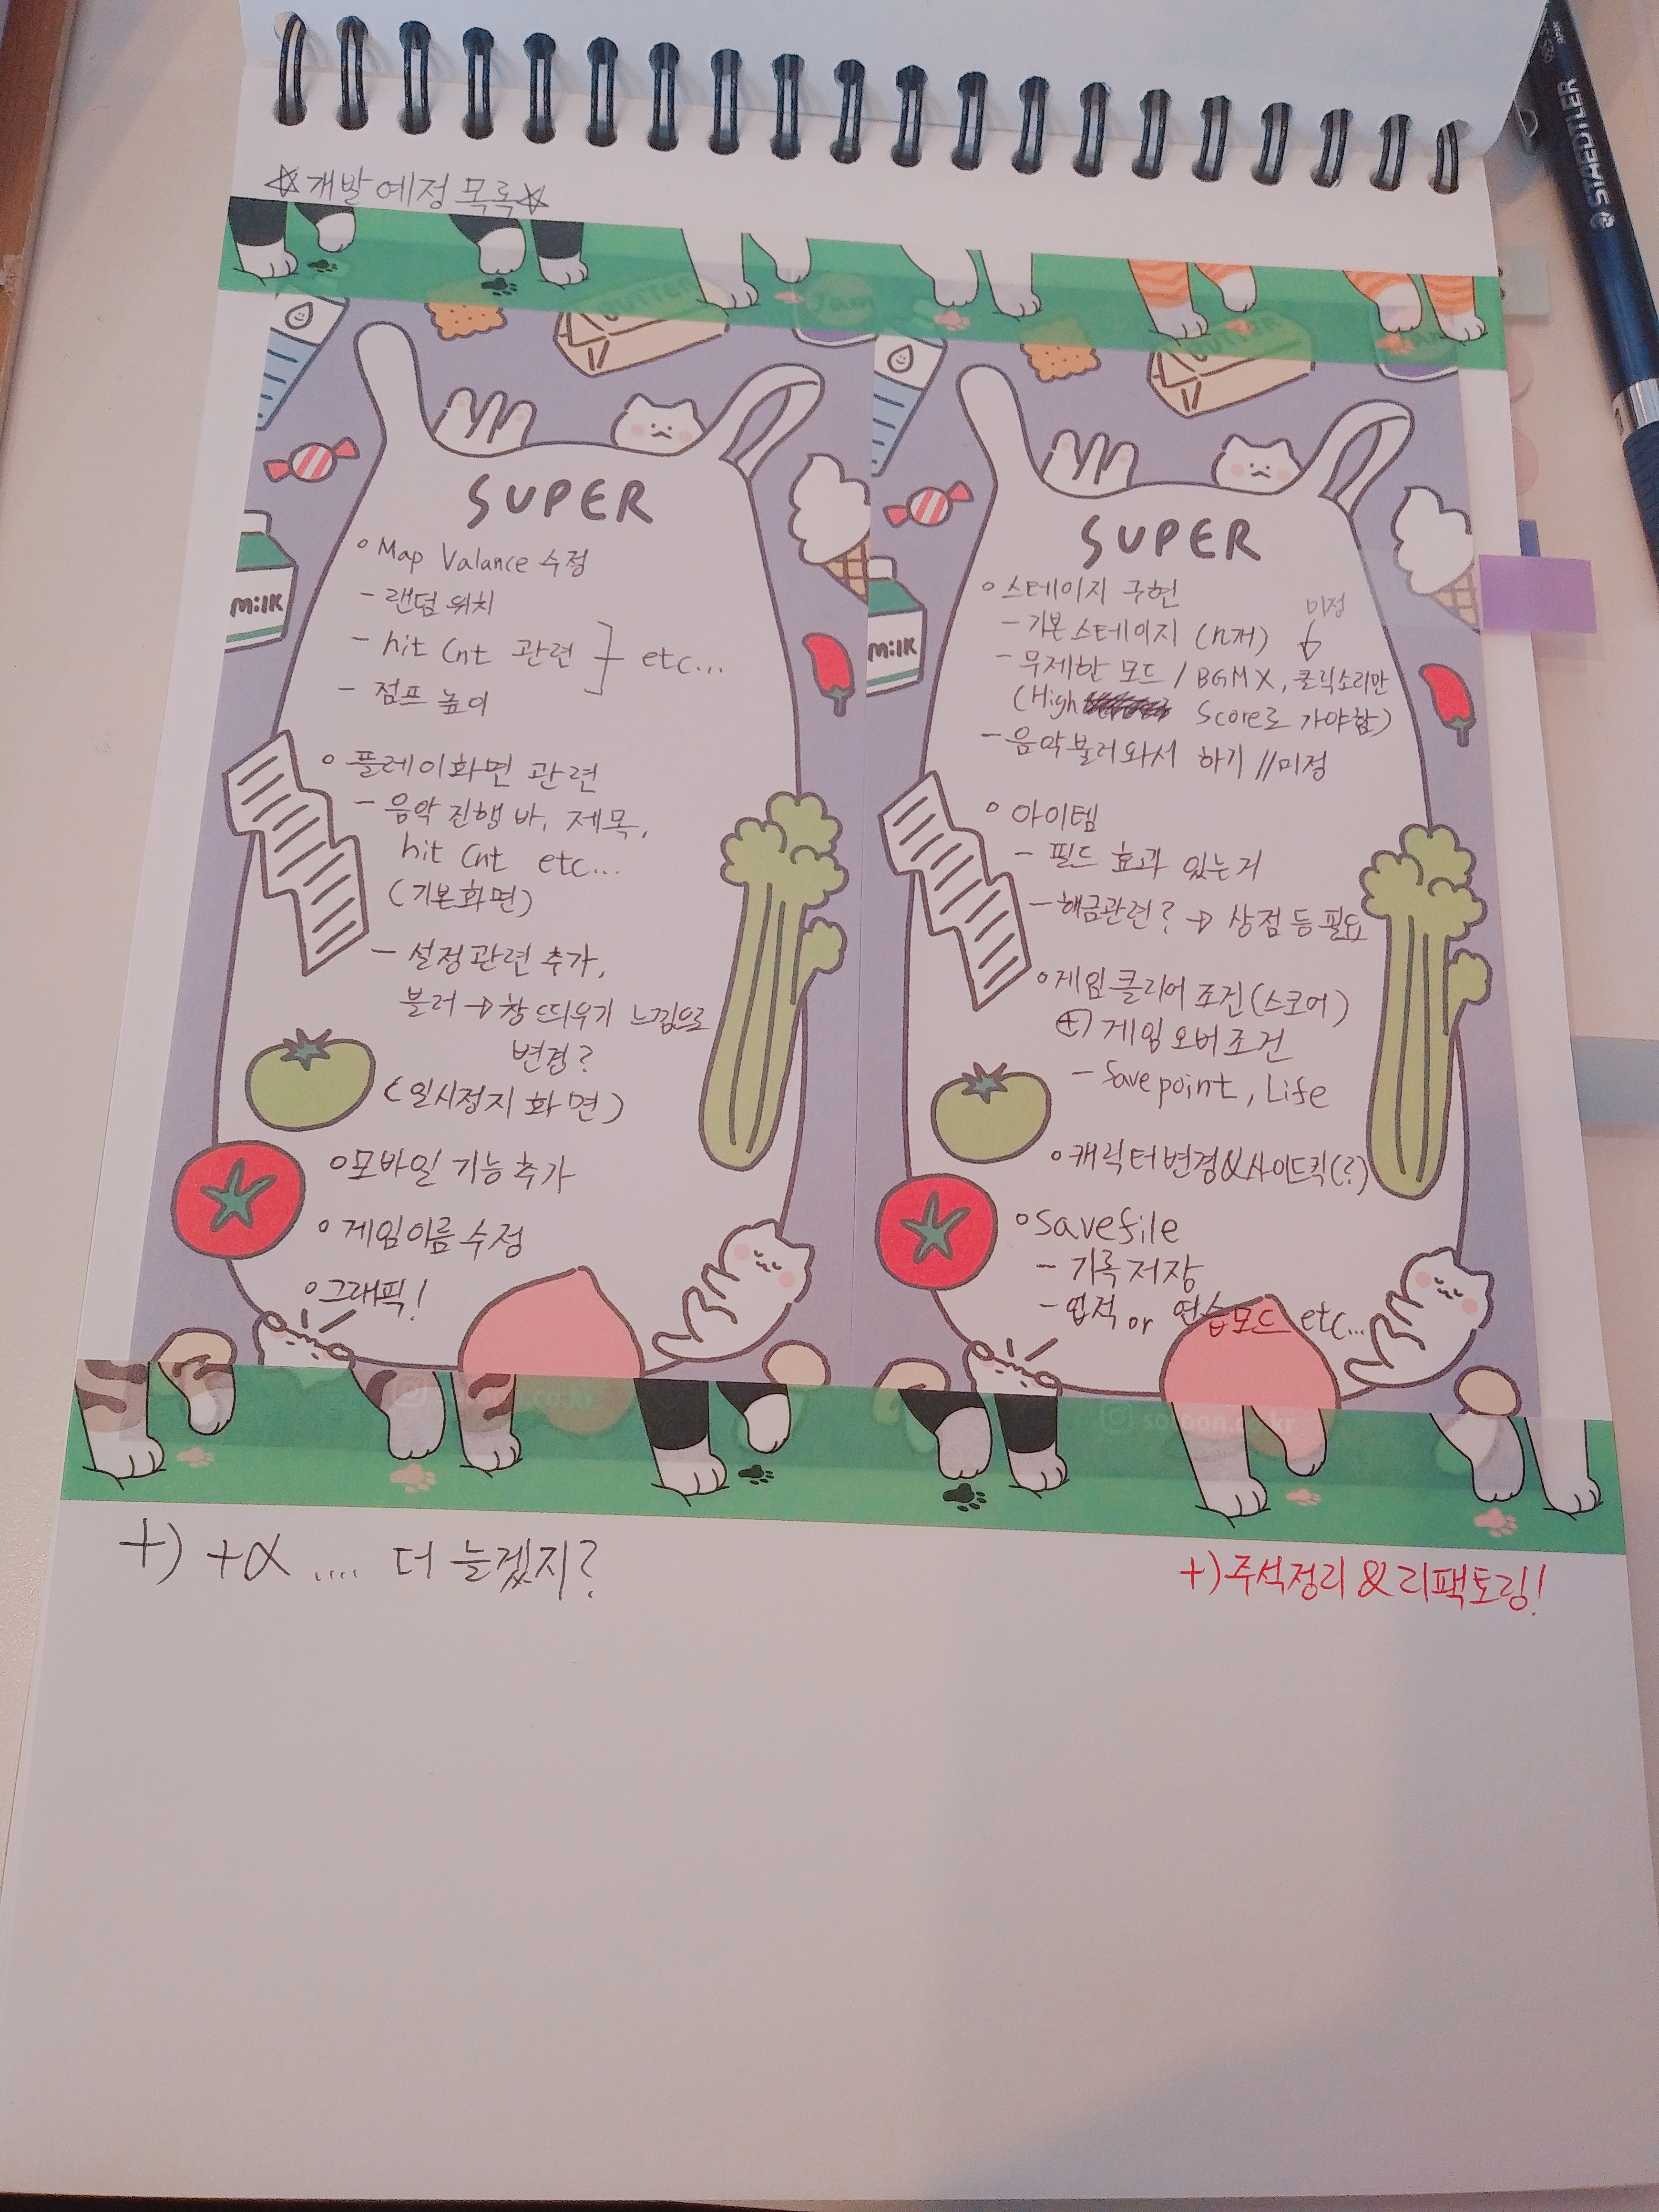 ☆개발예정 목록☆
SUPER
○ Map Valance 수정
- 랜덤 위치
- hit Cnt 관련
- 점프 높이
etc...
○ 플레이화면 관련
- 음악 진행 바, 제목,
hit Cnt etc...
(기본화면)
- 설정관련 추가,
블러 → 창 띄우기 느낌으로
변경?
(일시정지 화면)
○모바일 기능 추가
○ 게임이름 수정
○그래픽!
MilK
BUTTER
Jam
SUPER
○ 스테이지 구현
- 기본 스테이지 (n개)
미정
- 무제한 모드 / BGM X, 클릭소리만
(High Score로 가야함)
- 음악불러와서 하기 //미정
○ 아이템
- 필드 효과 있는거
- 해금관련? → 상점 등 필요
○게임클리어 조건(스코어)
⊕) 게임오버조건
- Save point, Life
○캐릭터변경&사이드킥(?)
○savefile
- 기록 저장
- 업적 or 연습모드 etc...
MilK
BUTTER
Jam
+) +α .... 더 늘겠지?
+)주석정리 & 리팩토링!
STAEDTLER